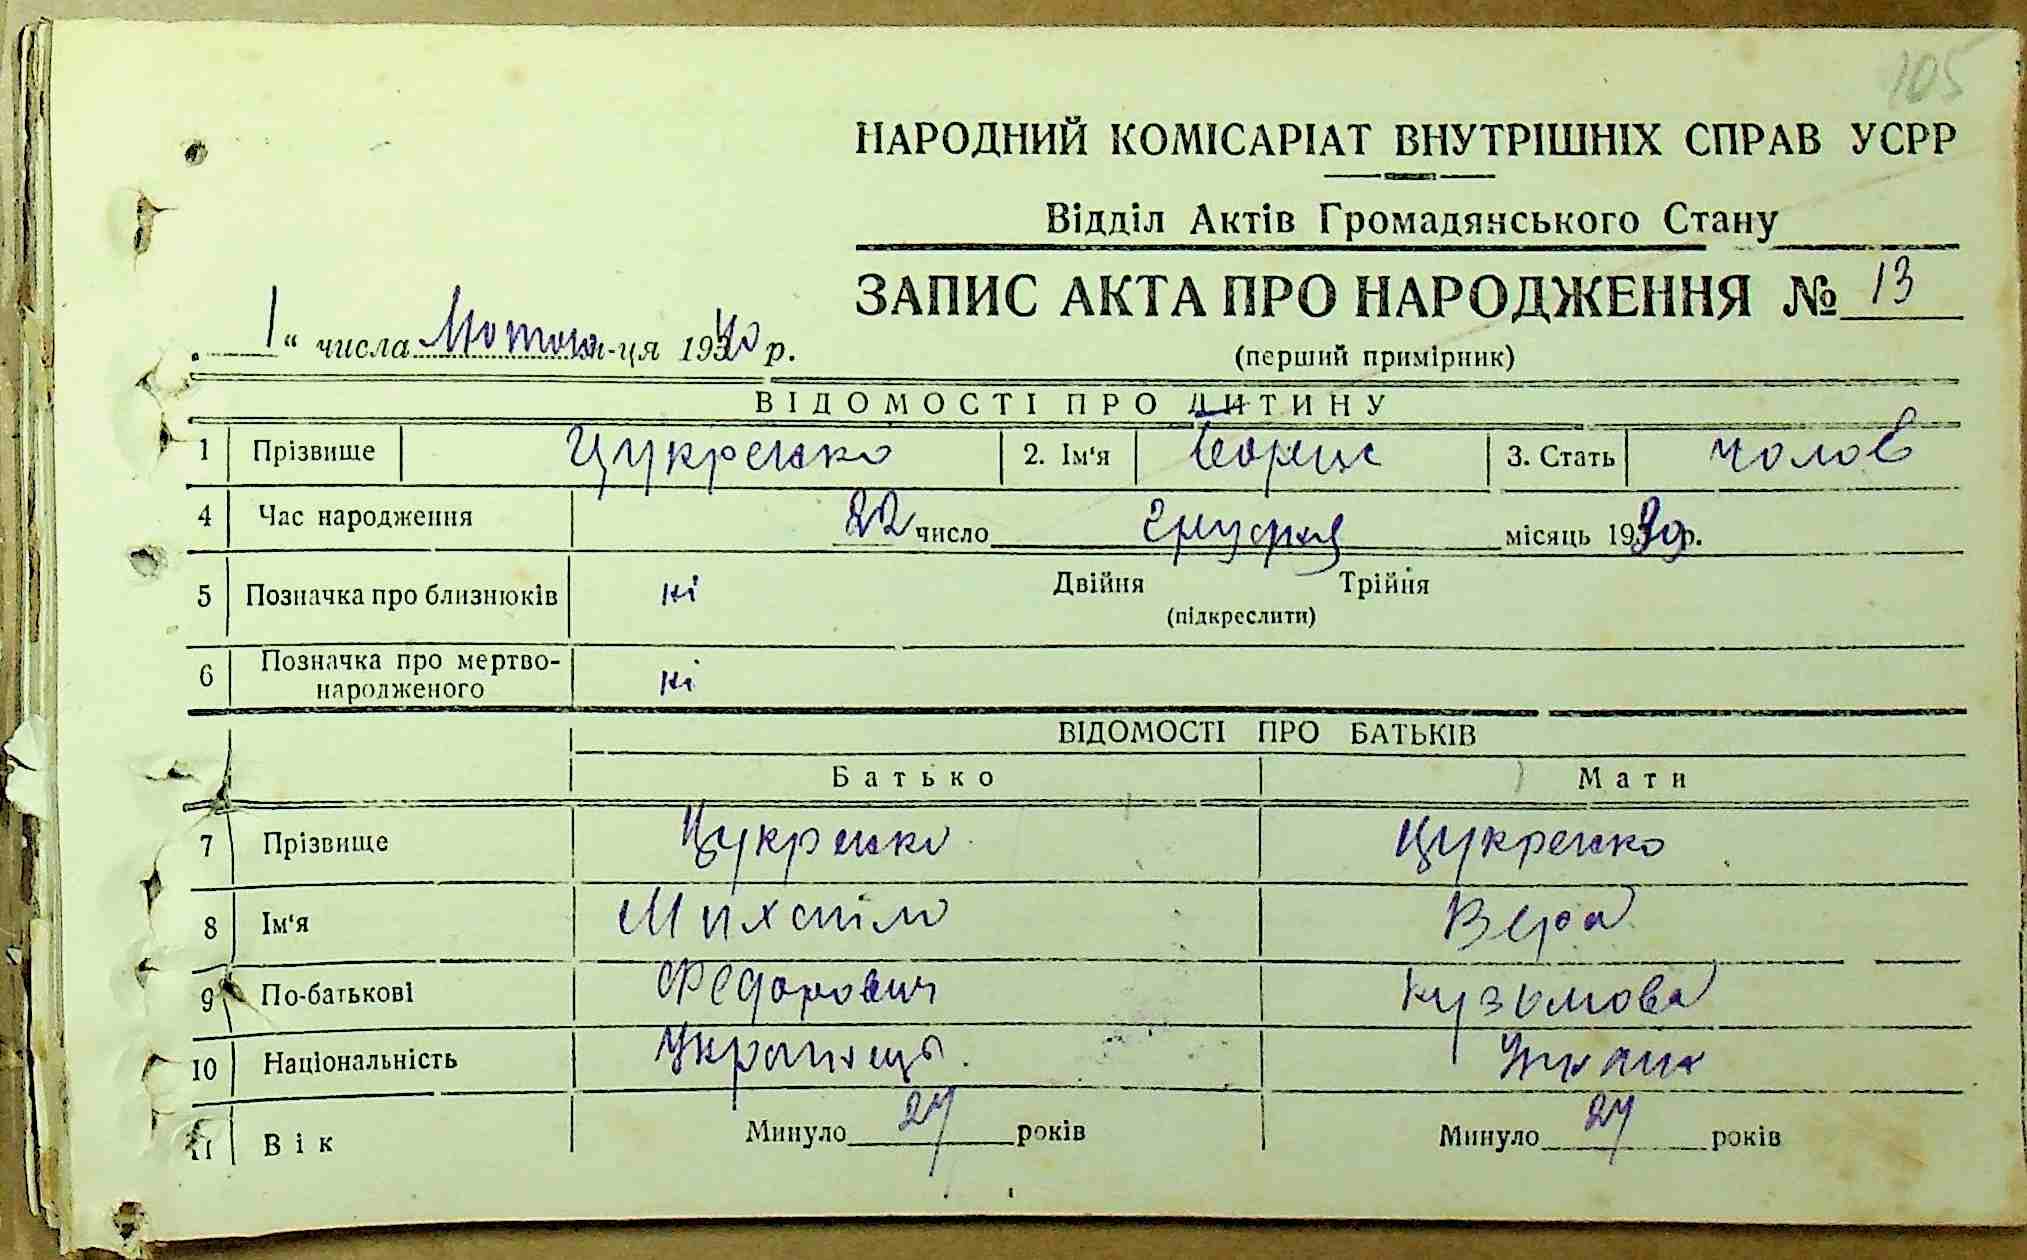 105
НАРОДНИЙ КОМІСАРІАТ ВНУТРІШНІХ СПРАВ УСРР
Відділ Актів Громадянського Стану
ЗАПИС АКТА ПРО НАРОДЖЕННЯ № 13
„1“ числа Лютого м-ця 1940 р.
(перший примірник)
ВІДОМОСТІ ПРО ДИТИНУ
1 Прізвище Цукренко 2. Ім'я Борис 3. Стать чолов
4 Час народження 22 число грудня місяць 1939 р.
5 Позначка про близнюків ні Двійня Трійня
(підкреслити)
6 Позначка про мертво-
народженого ні
ВІДОМОСТІ ПРО БАТЬКІВ
Батько Мати
7 Прізвище Цукренко Цукренко
8 Ім'я Михаіло Вера
9 По-батькові Федорович Кузьмова
10 Національність Українець
11 Вік Минуло 27 років Минуло 27 років